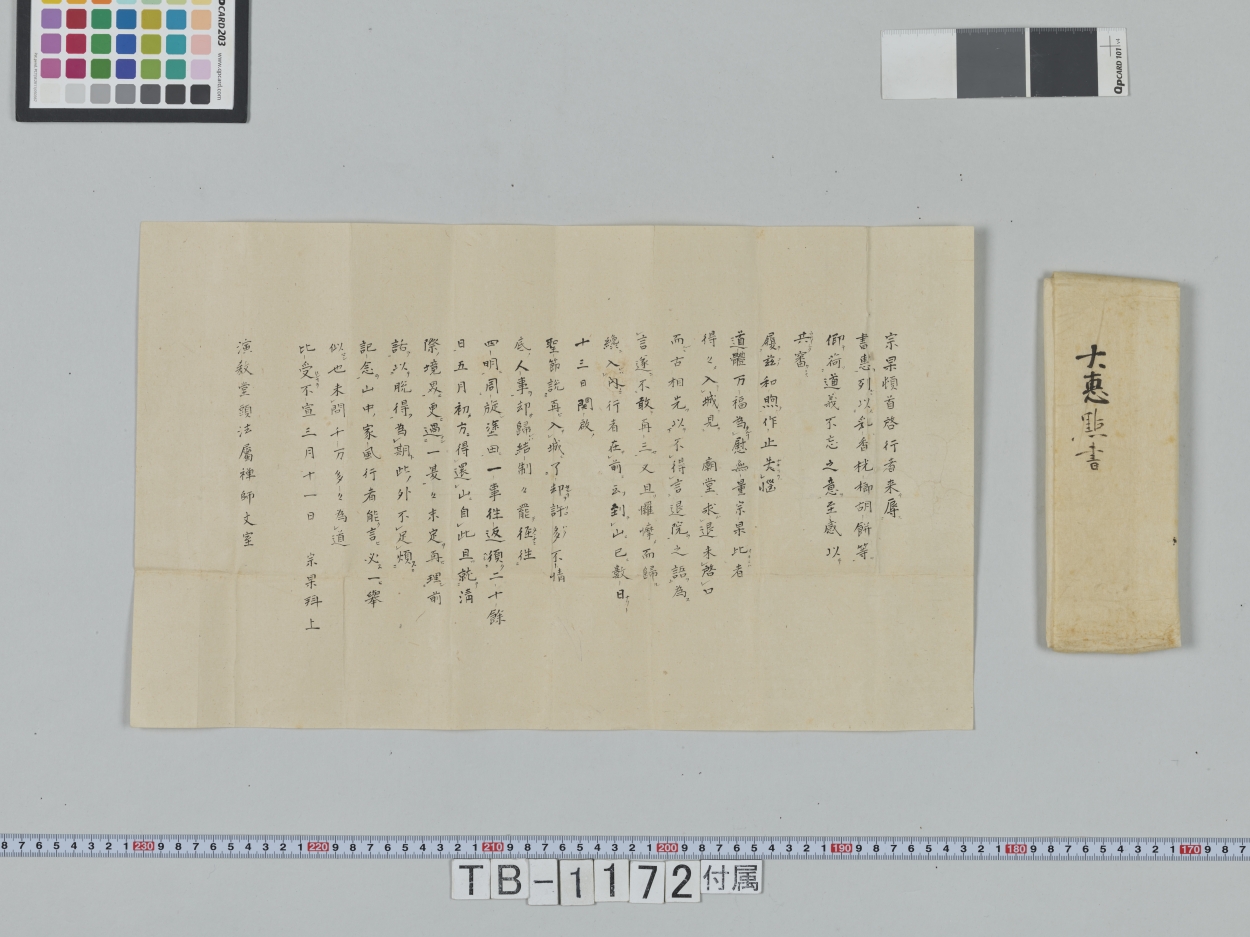 宗杲頓首啓行者来辱
書惠列以乳香桄榔胡餅等
仰荷道義不忘之意至感以
共審
履茲和煦作止失惱
道體万福為慰無量宗杲比者
得々入城見 廟堂求退未啓口
而古相先以不得言退院之語為
言遂不敢再三又且懡㦬而歸
續入內行者在前云到山已數日
十三日開啟
聖節說再入城了却許多不情
底人事却歸結制々罷徑往
四明周旋塗田一事往返須二十餘
日五月初方得還山自此且就清
際境界更過一夏々末定再理前
話以脫得為期此外不足煩
記念山中家風行者能言必一舉
似也未間千万多々為道
比受不宣三月十一日 宗杲 上
演教堂頭法屬禪師文室
大惠點書
QPCARD 203
www.qpcard.com
QPCARD 101 v4
230 220 210 200 190 180 170
TB-1172付属